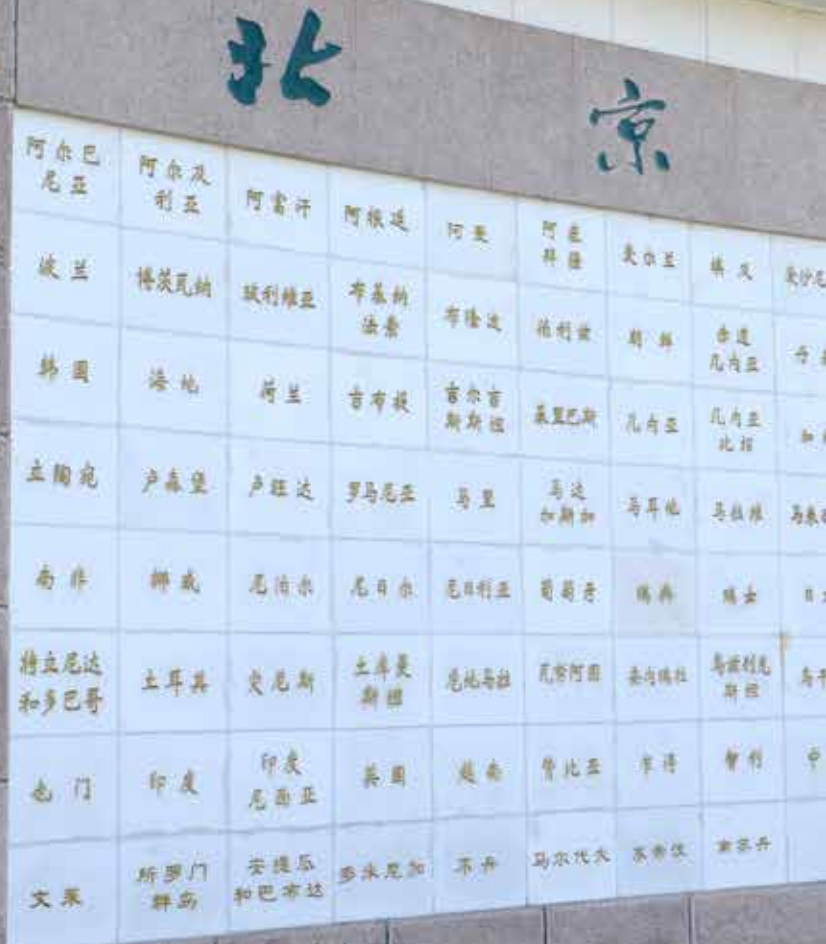 北京
阿尔巴
尼亚
阿尔及
利亚
阿富汗
阿根廷
阿曼
阿塞
拜疆
爱尔兰
埃及
爱沙尼
波兰
博茨瓦纳
玻利维亚
布基纳
法索
布隆迪
伯利兹
朝鲜
赤道
几内亚
丹
韩国
海地
荷兰
吉布提
吉尔吉
斯斯坦
基里巴斯
几内亚
几内亚
比绍
加
立陶宛
卢森堡
卢旺达
罗马尼亚
马里
马达
加斯加
马耳他
马拉维
马来
南非
挪威
尼泊尔
尼日尔
尼日利亚
葡萄牙
瑞典
瑞士
日
特立尼达
和多巴哥
土耳其
突尼斯
土库曼
斯坦
危地马拉
瓦努阿图
委内瑞拉
乌兹别克
斯坦
乌干
也门
印度
印度
尼西亚
英国
越南
赞比亚
乍得
智利
中
文莱
所罗门
群岛
安提瓜
和巴布达
多米尼加
不丹
马尔代夫
南苏丹